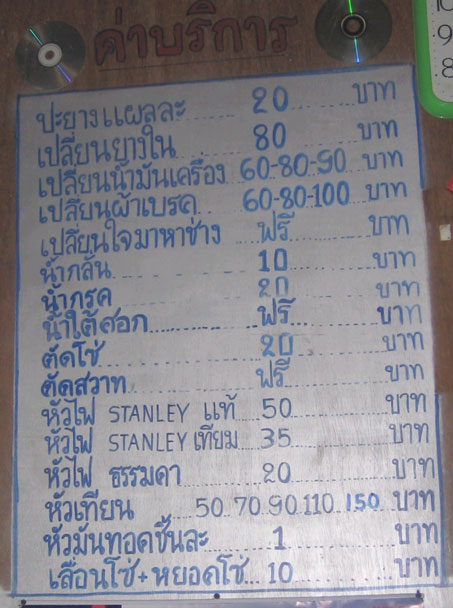 ค่าบริการ
ปะยางแผลละ 20 บาท
เปลี่ยนยางใน 80 บาท
เปลี่ยนน้ำมันเครื่อง 60-80-90 บาท
เปลี่ยนผ้าเบรค 60-80-100 บาท
เปลี่ยนใจมาหาช่าง ฟรี บาท
น้ำกลั่น 10 บาท
น้ำกรด 20 บาท
น้ำใต้ศอก ฟรี บาท
ตัดโซ่ 20 บาท
ตัดสวาท ฟรี บาท
หัวไฟ STANLEY แท้ 50 บาท
หัวไฟ STANLEY เทียม 35 บาท
หัวไฟ ธรรมดา 20 บาท
หัวเทียน 50..70..90..110..150 บาท
หัวมันทอดชิ้นละ 1 บาท
เลื่อนโซ่+หยอดโซ่ 10 บาท
10
9
8